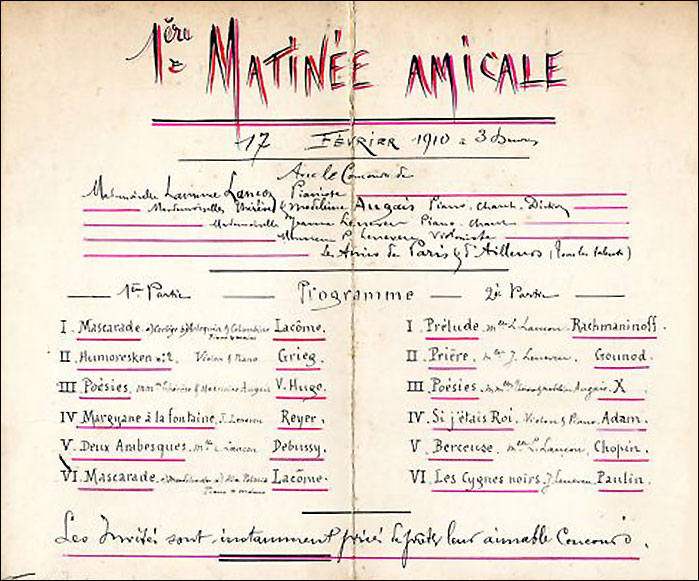 1ère MATINÉE AMICALE
17 FÉVRIER 1910 à 3 heures
Avec le Concours de
Mademoiselle Laurence Lançon Pianiste
Mesdemoiselles Thérèse & Madeleine Augais Piano. Chant. Diction
Mademoiselle Jeanne Leneveu Piano. Chant
Monsieur P. Leneveu Violoniste
Les Amis de Paris & d'Ailleurs (tous les talents)
1re Partie Programme 2e Partie
I. Mascarade. Cortège Arlequin & Colombine Piano 4 mains Lacôme.
II Humoresken Violon & Piano Grieg.
III Poésies. Thérèse & Madeleine Augais V. Hugo.
IV Margyane à la fontaine. J. Leneveu Reyer.
V. Deux Arabesques. Mlle L. Lançon Debussy.
VI. Mascarade. Piano 4 mains Lacôme.
I. Prélude. Mlle L. Lançon Rachmaninoff.
II. Prière. Mlle J. Leneveu. Gounod.
III Poésies. Augais. X
IV. Si j'étais Roi. Violon & Piano. Adam.
V. Berceuse. Mlle L. Lançon. Chopin.
VI. Les Cygnes noirs. J. Leneveu Paulin.
Les Invités sont instamment priés de prêter leur aimable Concours.